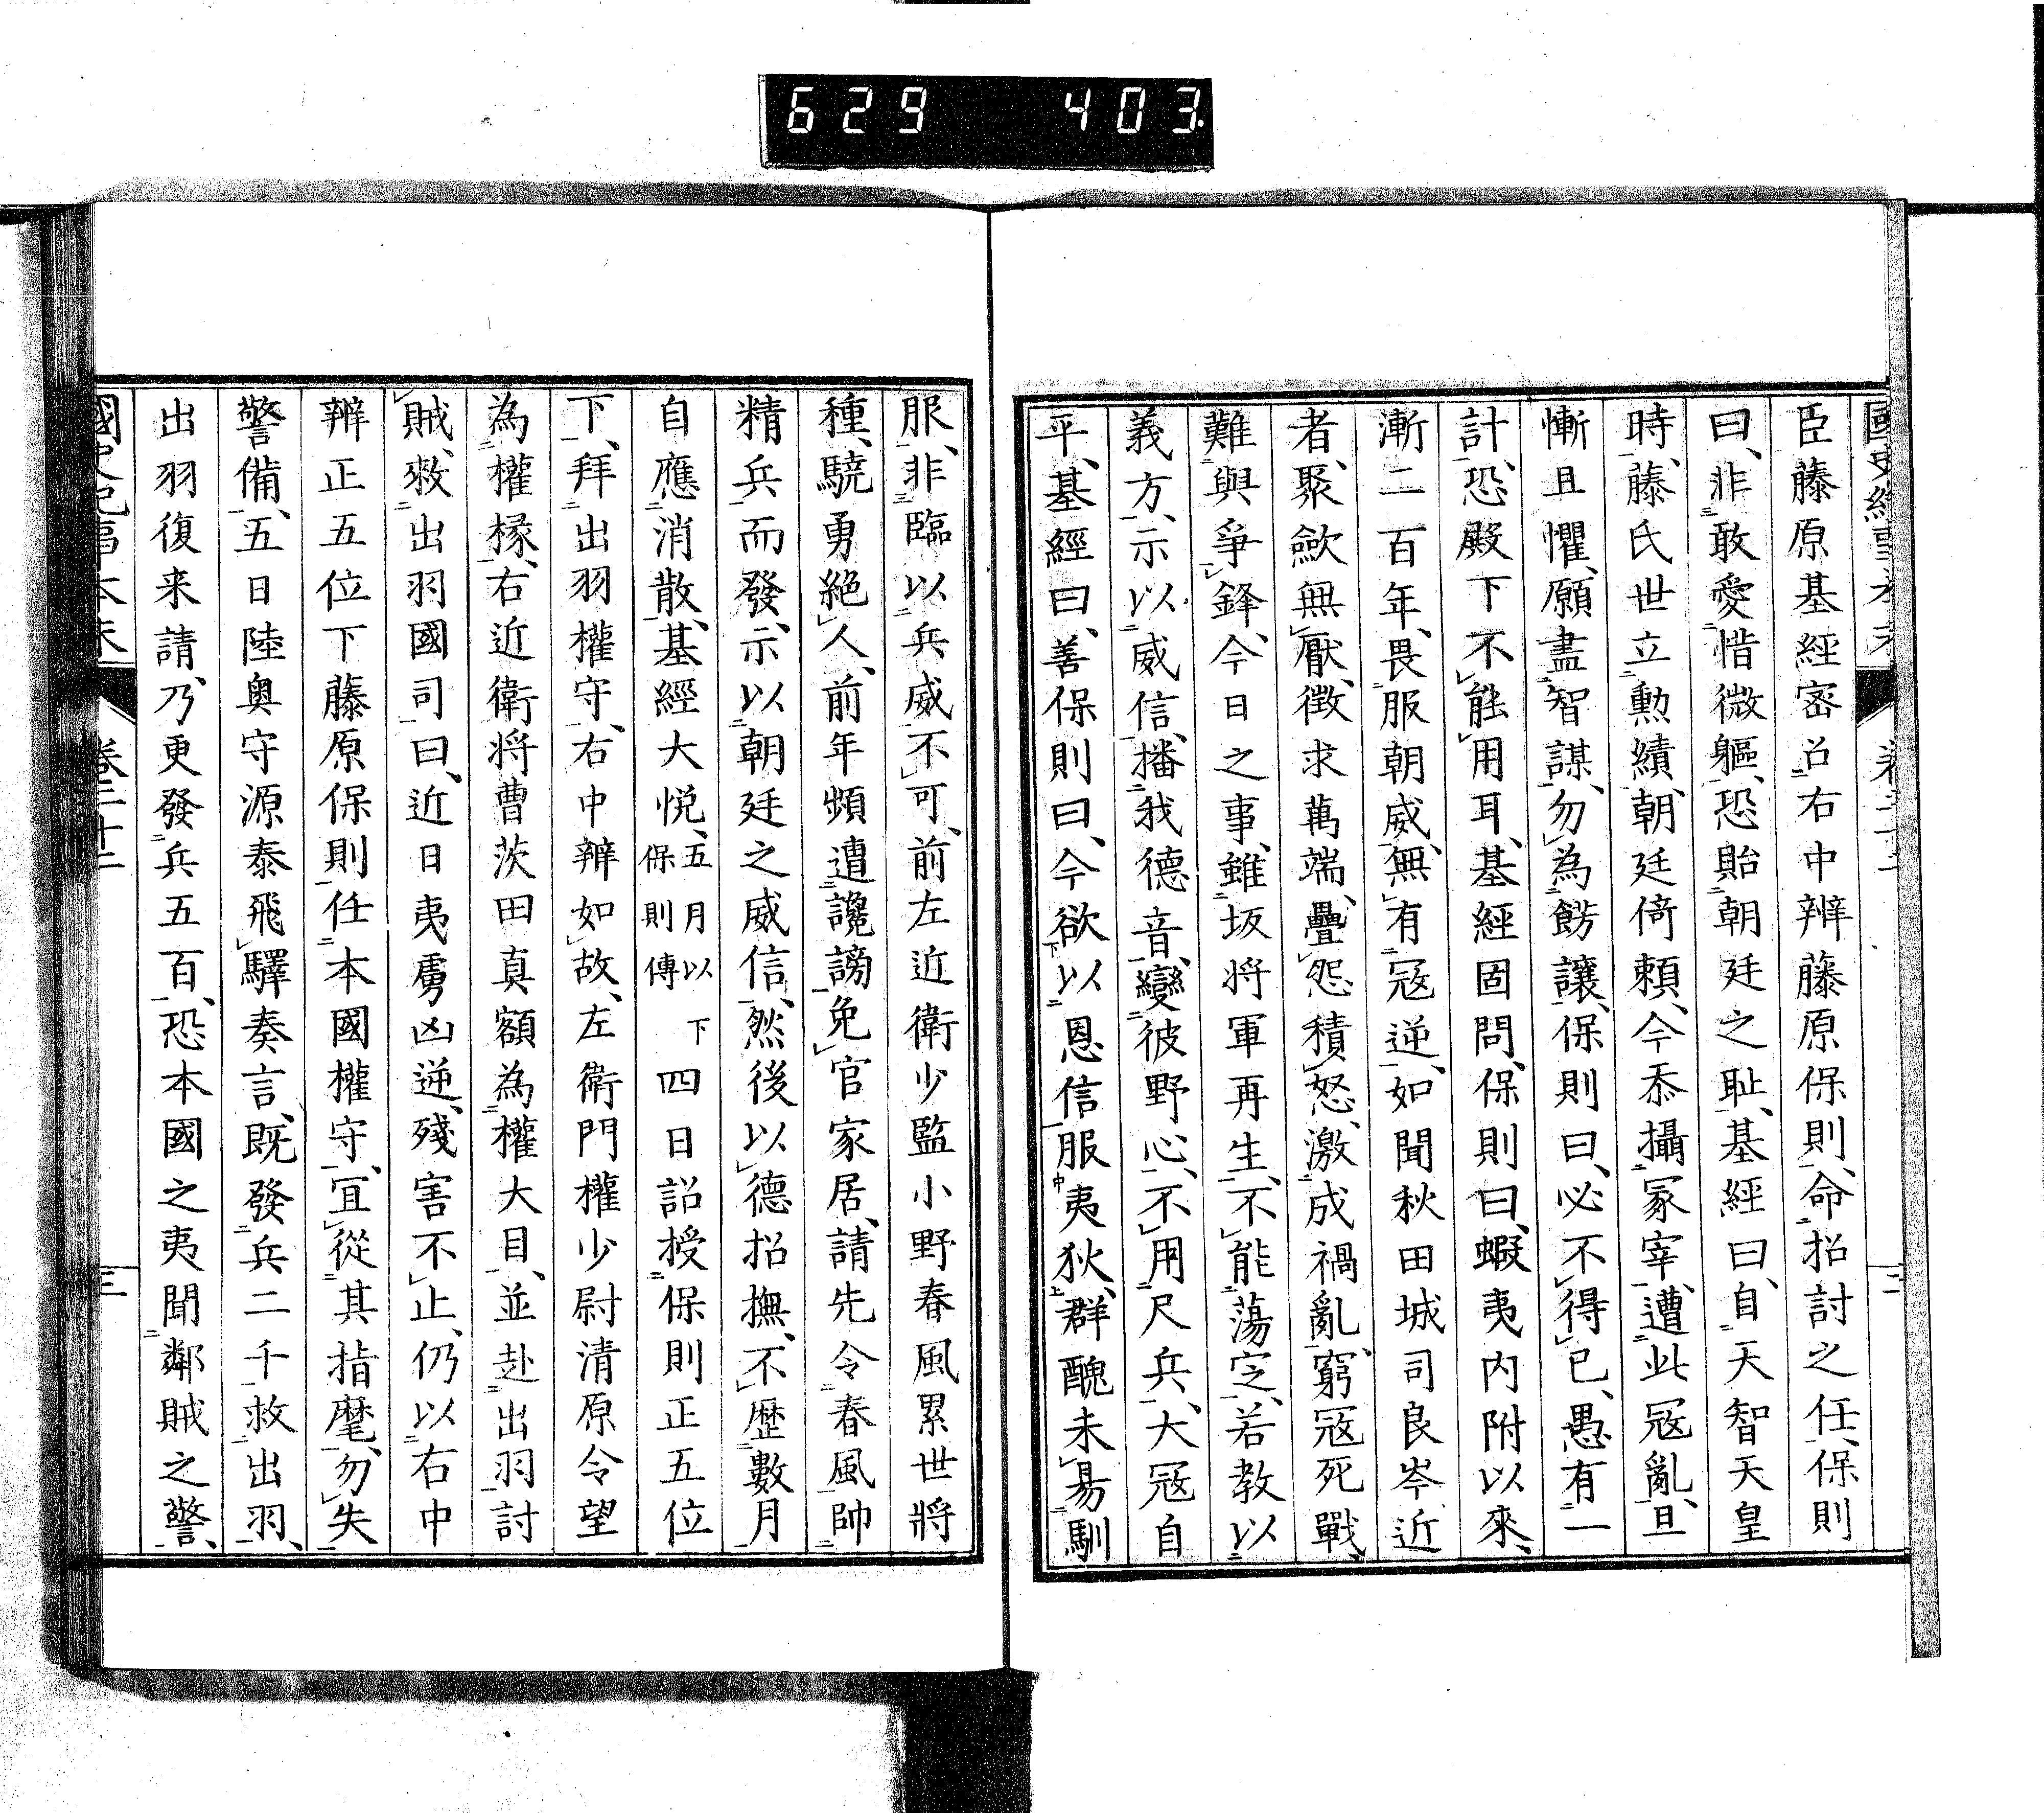 629 403
臣藤原基經密召右中辨藤原保則、命招討之任、保則
曰、非敢愛惜微軀、恐貽朝廷之耻、基經曰、自天智天皇
時、藤氏世立勲績、朝廷倚頼、今忝攝冢宰、遭此冦亂、且
慚且懼、願盡智謀、勿為餝讓、保則曰、必不得已、愚有一
計、恐殿下不能用耳、基經固問、保則曰、蝦夷内附以來、
漸二百年、畏服朝威、無有冦逆、如聞秋田城司良岑近
者、聚歛無厭、徴求萬端、疊怨積怒、激成禍亂、窮冦死戰、
難與爭鋒、今日之事、雖坂将軍再生、不能蕩定、若教以
義方、示以威信、播我德音、變彼野心、不用尺兵、大冦自
平、基經曰、善保則曰、今欲以恩信服夷狄、群醜未易馴
服、非臨以兵威不可、前左近衛少監小野春風累世將
種、驍勇絶人、前年頻遭讒謗、免官家居、請先令春風帥
精兵而發、示以朝廷之威信、然後以德招撫、不歴數月
自應消散、基經大悦、五月以下保則傳四日詔授保則正五位
下、拜出羽權守、右中辨如故、左衛門權少尉清原令望
為權掾、右近衛将曹茨田真額為權大目、並赴出羽討
賊、敕出羽國司曰、近日夷虜凶逆、殘害不止、仍以右中
辨正五位下藤原保則任本國權守、宜從其指麾、勿失
警備、五日陸奥守源泰飛驛奏言、既發兵二千救出羽、
出羽復来請、乃更發兵五百、恐本國之夷聞鄰賊之警、
國史紀事本末 卷二十二 三